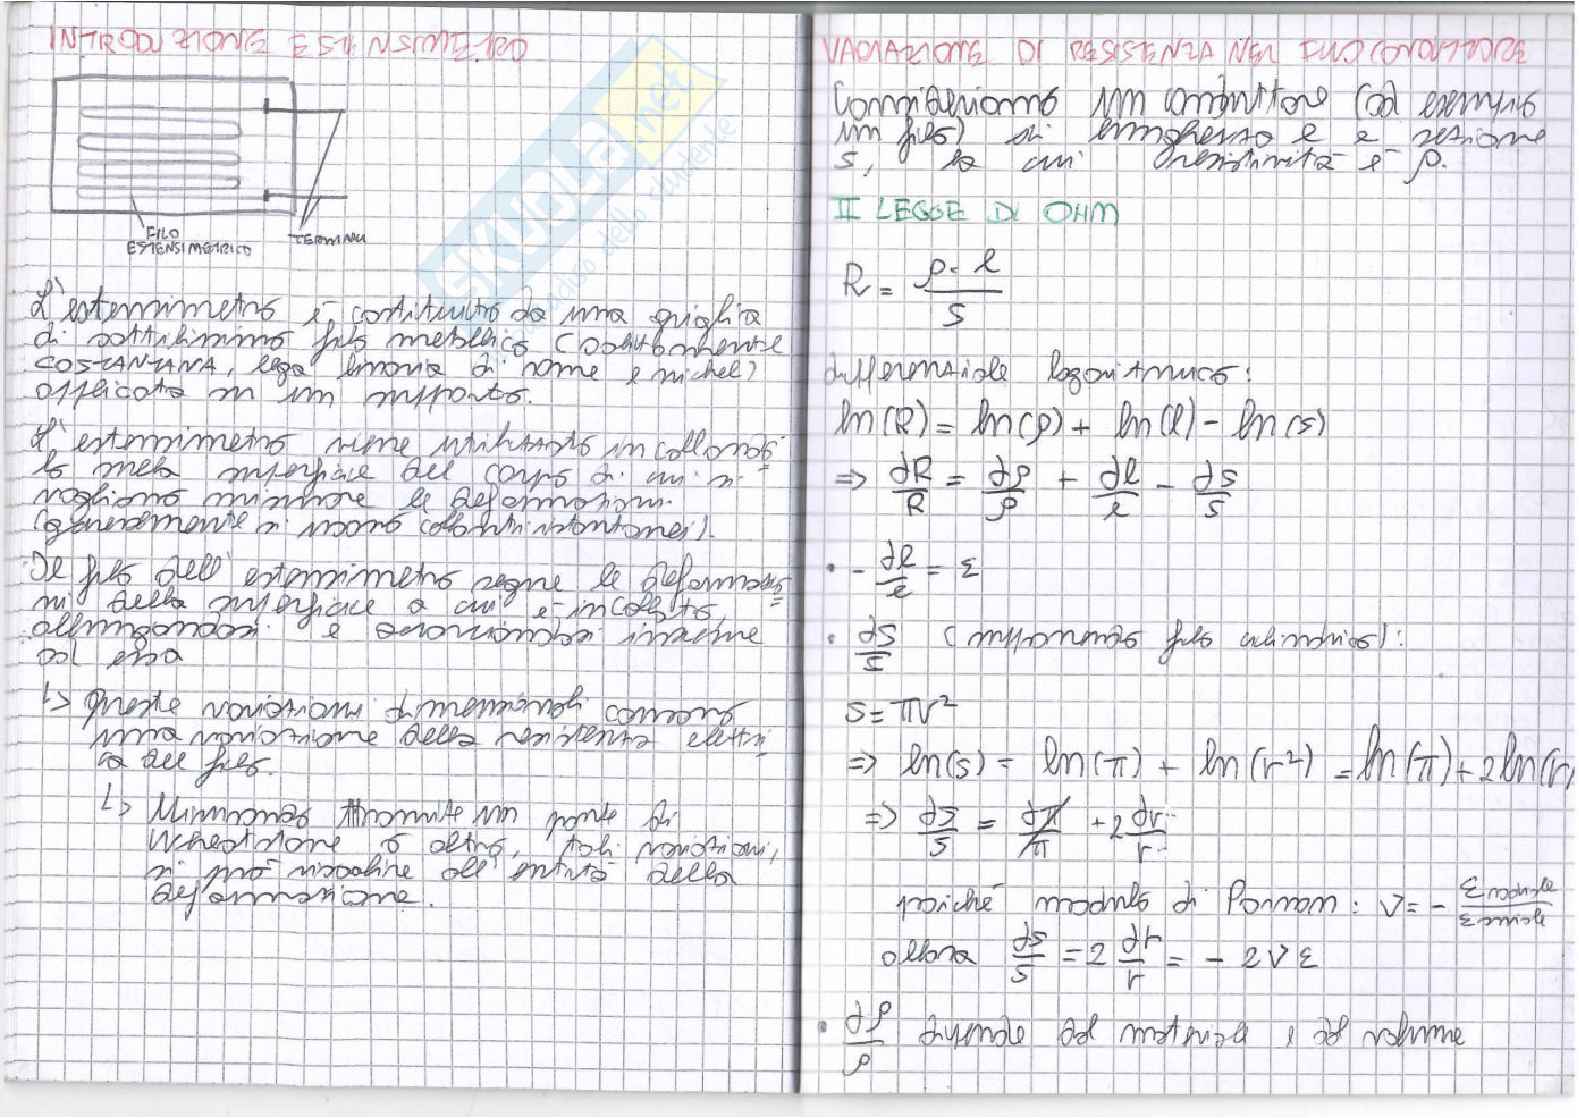 INTRODUZIONE E ESTENSIMETRO
FILO
ESTENSIMETRICO
TERMINALI
L'estensimetro è costituito da una griglia
di sottilissimo filo metallico (solitamente
COSTANTANA, lega binaria di rame e nichel)
applicata su un supporto.
L'estensimetro viene utilizzato incollando=
lo sulla superficie del corpo di cui si
vogliono misurare le deformazioni.
(generalmente si usano collanti istantanei).
Il filo dell'estensimetro segue le deformazio=
ni della superficie a cui è incollato,
allungandosi e accorciandosi insieme
ad essa
↳ Queste variazioni dimensionali causano
una variazione della resistenza elettri
ca del filo.
↳ Misurando tramite un ponte di
Wheatstone o altro, tali variazioni,
si può risalire all'entità della
deformazione.
SKUOLA.net
dello studente
VARIAZIONE DI RESISTENZA NEL FILO CONDUTTORE
Consideriamo un conduttore (ad esempio
un filo) di lunghezza l e sezione
S, la cui resistività è ρ.
II LEGGE DI OHM
R = ρ·l/S
differenziale logaritmico:
ln(R) = ln(ρ) + ln(l) - ln(s)
=> dR/R = dρ/ρ + dl/l - dS/S
• - dl/l = ε
• dS/S (supponendo filo cilindrico):
S = πr²
=> ln(s) = ln(π) + ln(r²) = ln(π) + 2ln(r)
=> dS/S = dπ/π + 2 dr/r
poiché modulo di Poisson: ν = -
allora dS/S = 2 dr/r = - 2νε
• dρ/ρ dipende dal materiale, dal volume